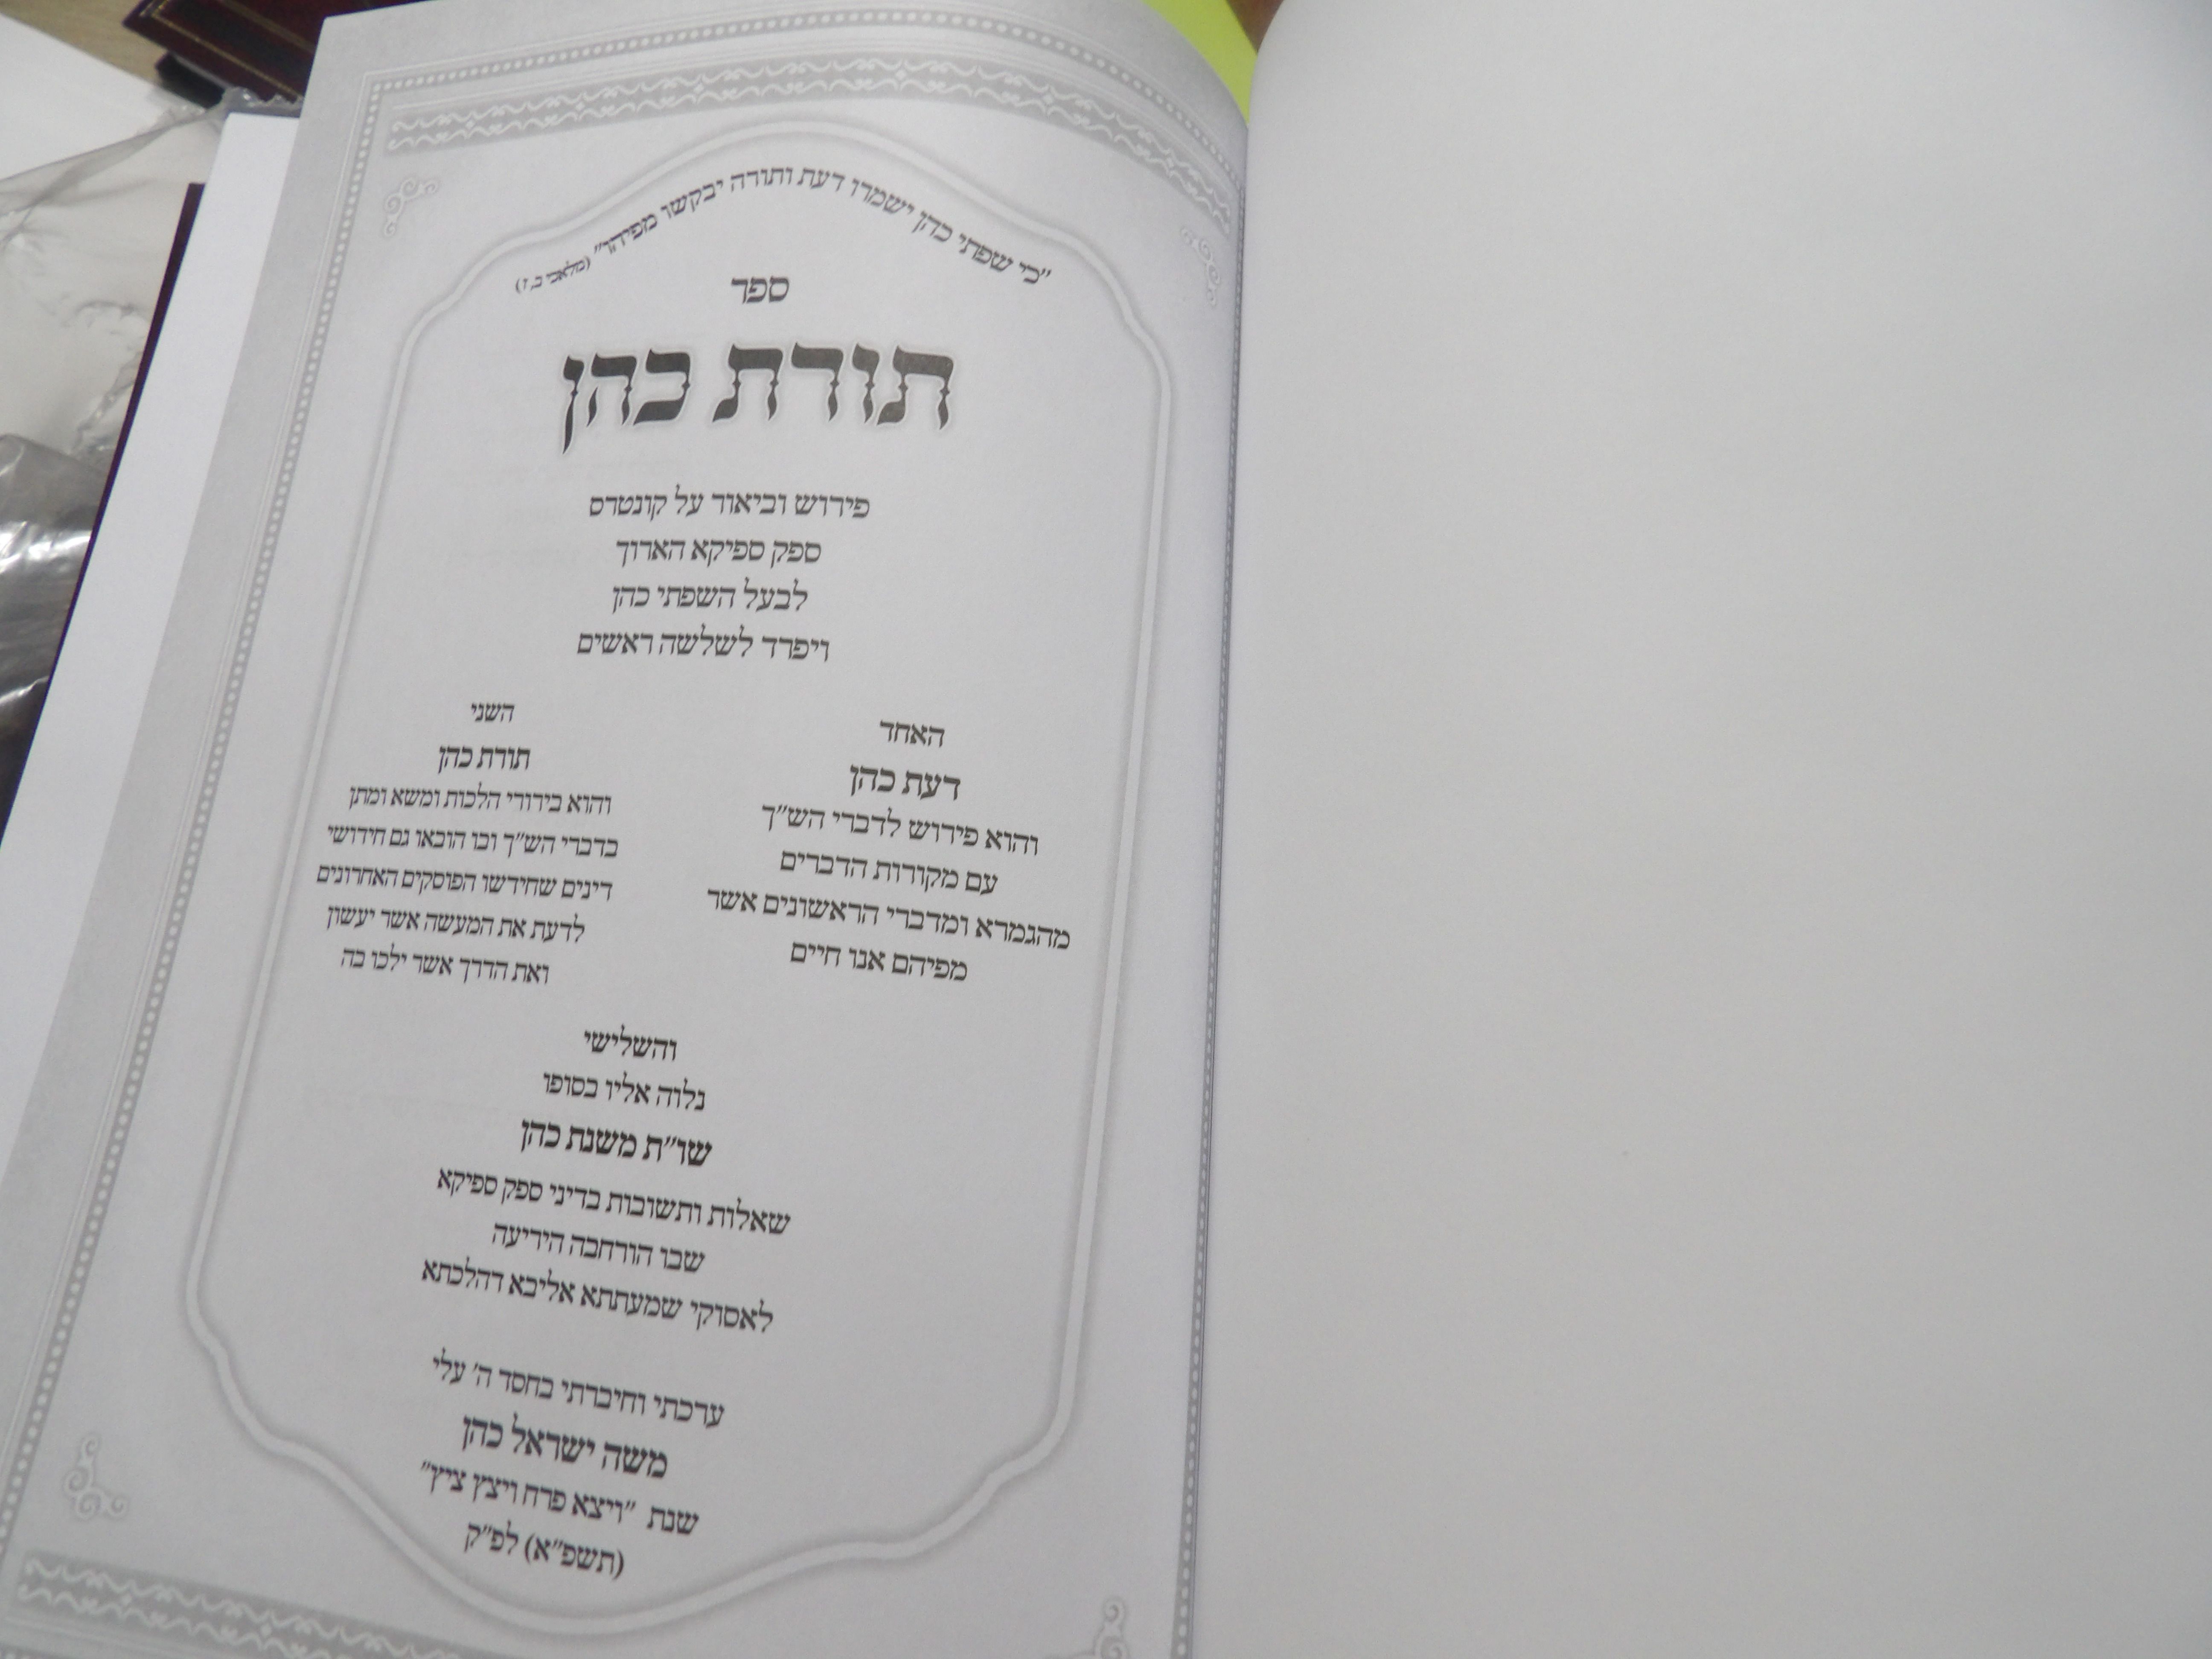 "כי שפתי כהן ישמרו דעת ותורה יבקשו מפיהו" (מלאכי ב, ז)
ספר
תורת כהן
פירוש וביאור על קונטרס
ספק ספיקא הארוך
לבעל השפתי כהן
ויפרד לשלשה ראשים
האחד
דעת כהן
והוא פירוש לדברי הש"ך
עם מקורות הדברים
מהגמרא ומדברי הראשונים אשר
מפיהם אנו חיים
השני
תורת כהן
והוא בירורי הלכות ומשא ומתן
בדברי הש"ך ובו הובאו גם חידושי
דינים שחידשו הפוסקים האחרונים
לדעת את המעשה אשר יעשון
ואת הדרך אשר ילכו בה
והשלישי
נלוה אליו בסופו
שו"ת משנת כהן
שאלות ותשובות בדיני ספק ספיקא
שבו הורחבה היריעה
לאסוקי שמעתתא אליבא דהלכתא
ערכתי וחיברתי בחסד ה' עלי
משה ישראל כהן
שנת "ויצא פרח ויצץ ציץ"
(תשפ"א) לפ"ק